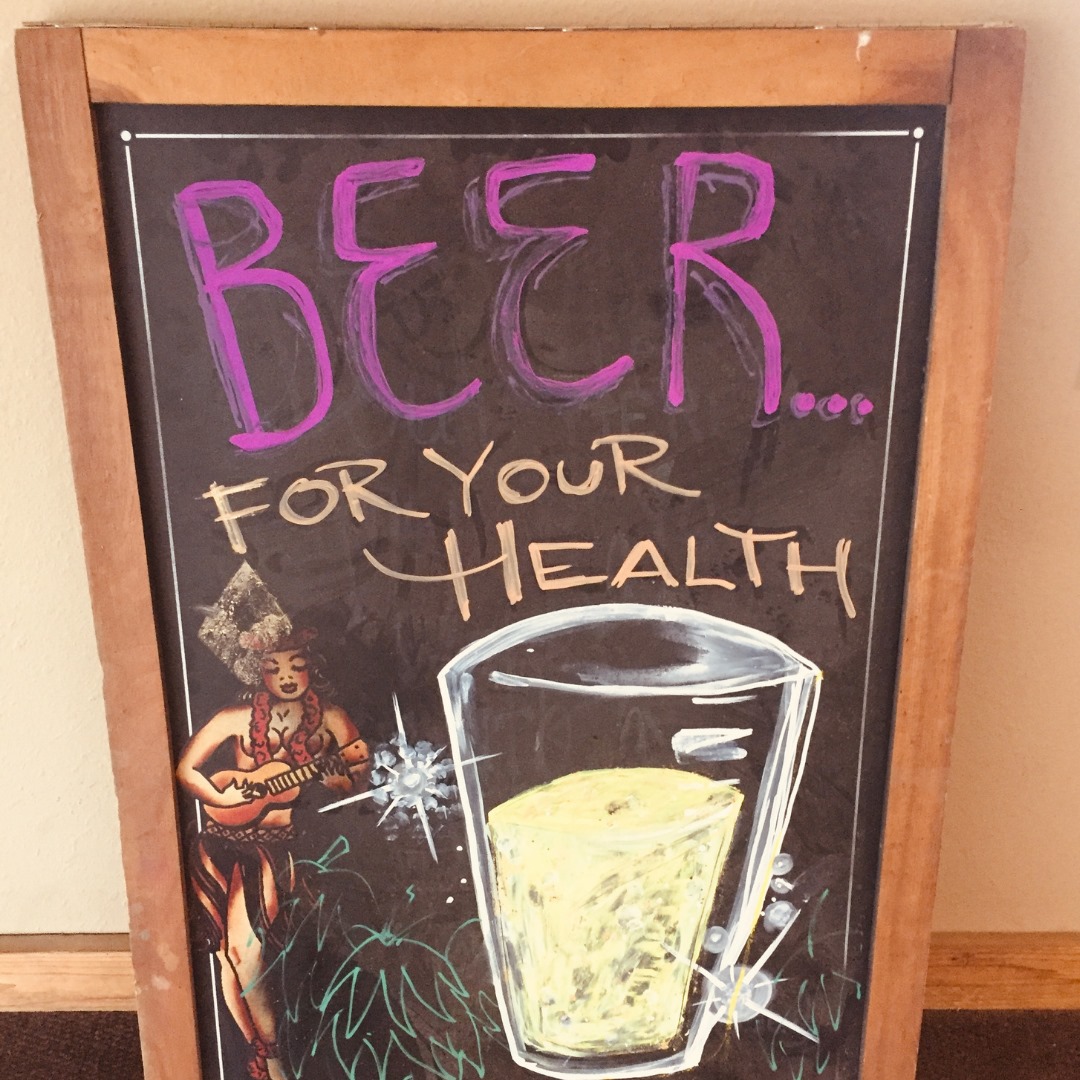 BEER...
FOR YOUR
HEALTH